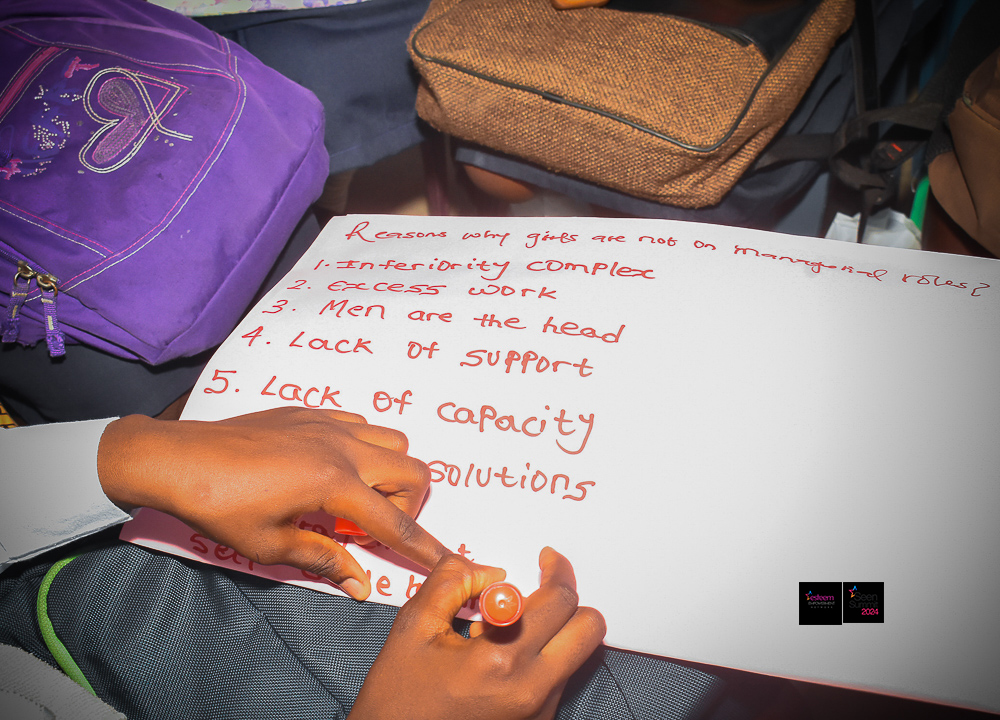 Reasons why girls are not on managerial roles?
1. Inferiority complex
2. excess work
3. Men are the head
4. Lack of support
5. Lack of capacity
solutions
self
esteem
EMPOWERMENT
NETWORK
Seen
Summit
2024